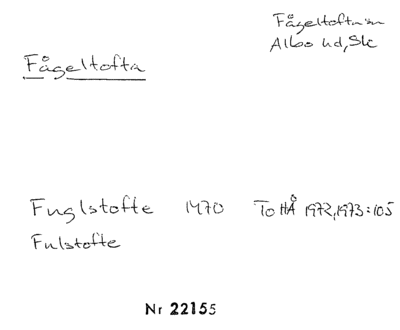 Fågeltofta sn
Albo hd, Sk
Fågeltofta
Fuglstofte 1470 ToHÅ 1972, 1973:105
Fulstofte
Nr 22155